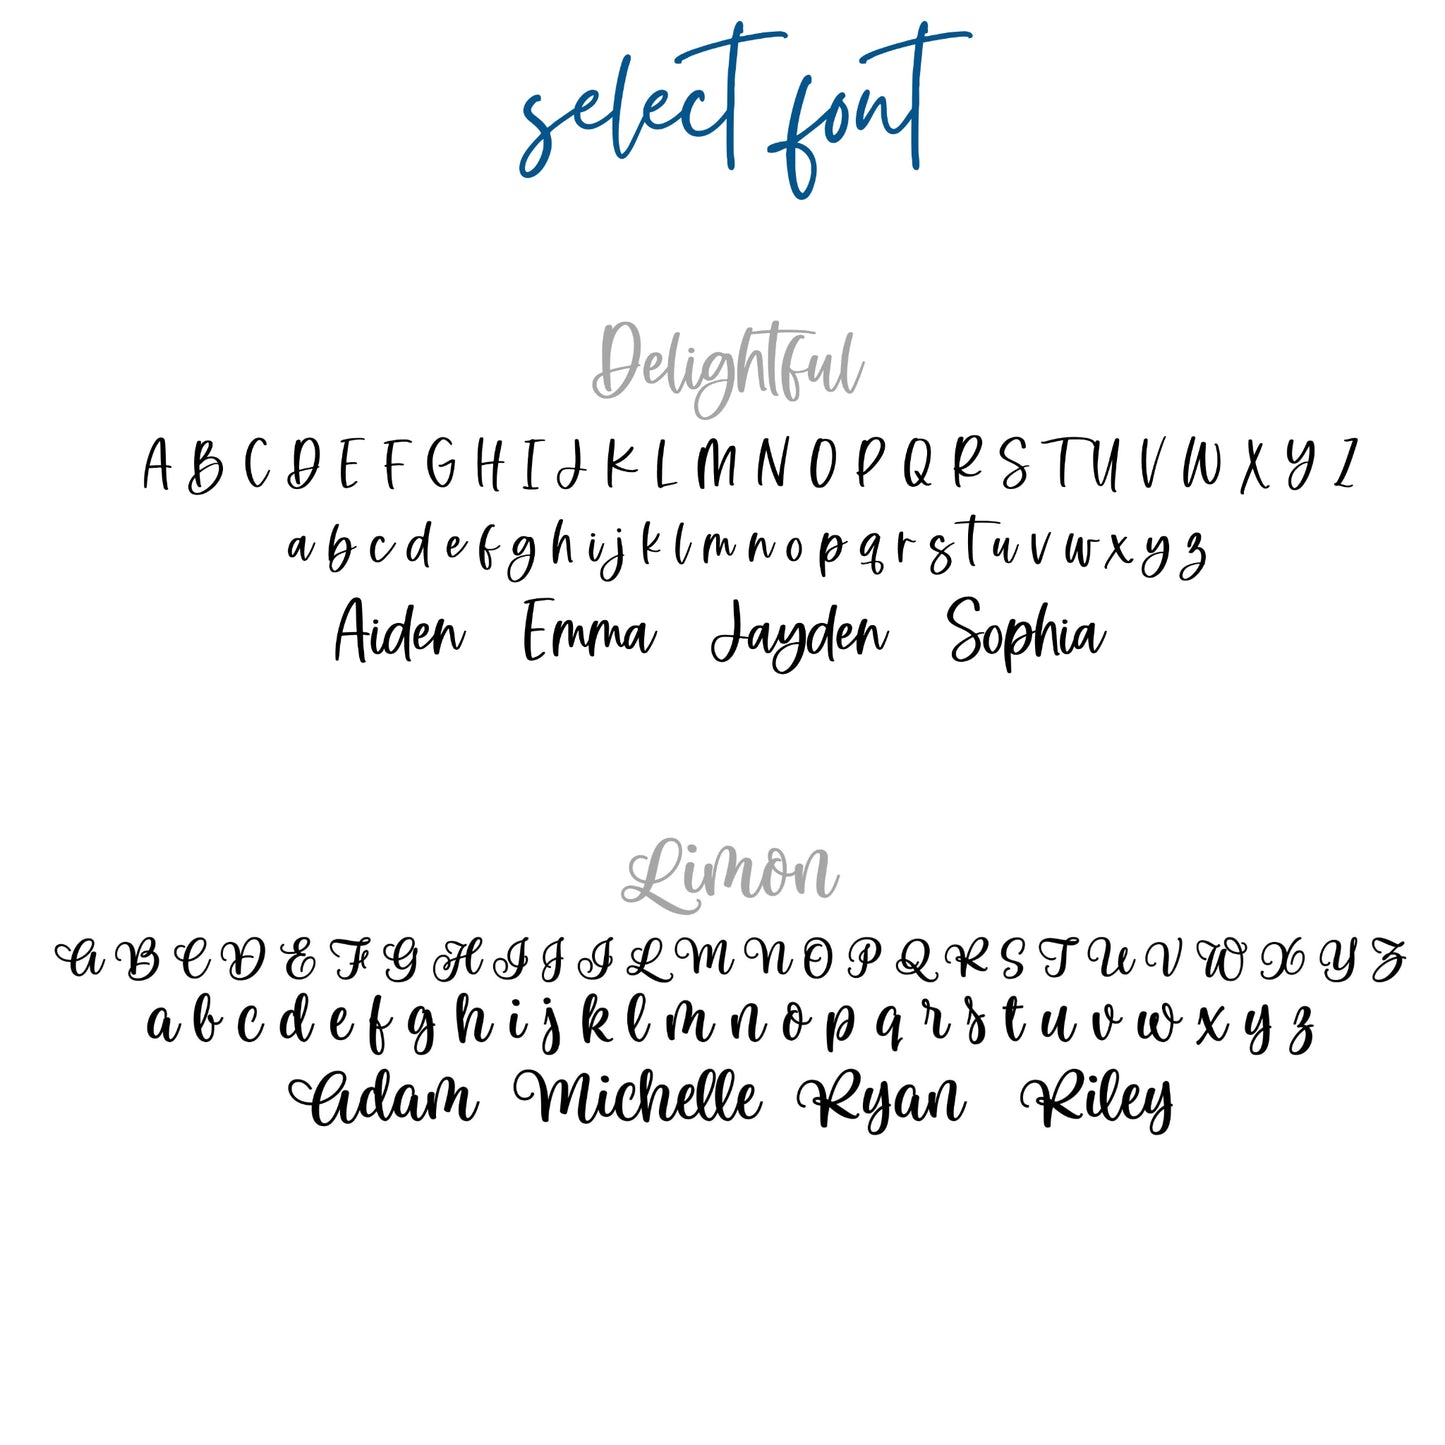 select font
Delightful
A B C D E F G H I J K L M N O P Q R S T U V W X Y Z
a b c d e f g h i j k l m n o p q r s t u v w x y z
Aiden Emma Jayden Sophia
Limon
A B C D E F G H I J I L M N O P Q R S T U V W X Y Z
a b c d e f g h i j k l m n o p q r s t u v w x y z
Adam Michelle Ryan Riley